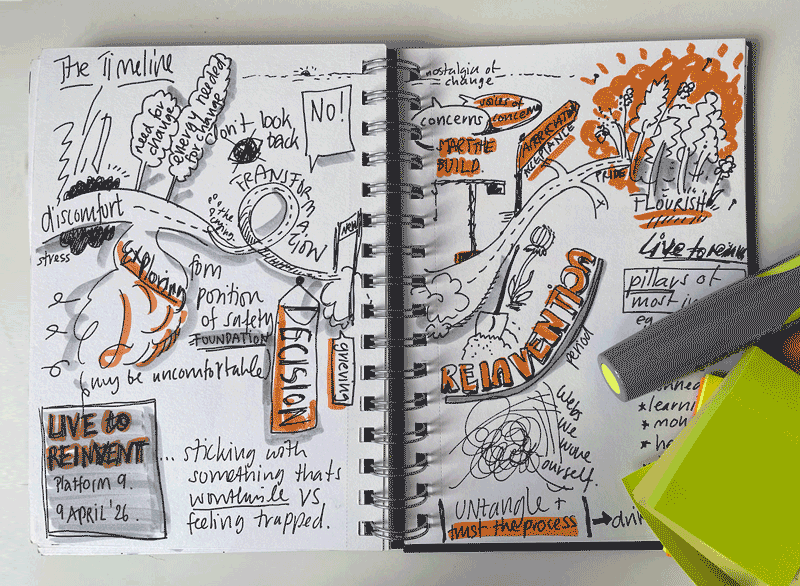 The Timeline
need for
change
energy needed
for change
Don't look
back
NO!
discomfort
stress
TRANSFORM
A
TION
exploring
from
position
of safety
FOUNDATION
may be uncomfortable
DECISION
grieving
LIVE to
REINVENT
Platform 9.
9 APRIL '26.
... sticking with
something thats
worthwhile VS
feeling trapped.
nostalgia of
change
concerns
voices of
concern
START THE
BUILD.
APPRECIATION
ACCEPTANCE
PRIDE
FLOURISH
Live to rein
pillars of
most i
eg
REINVENTION
period
Webs
we wove
ourself.
learni
untangle +
trust the process